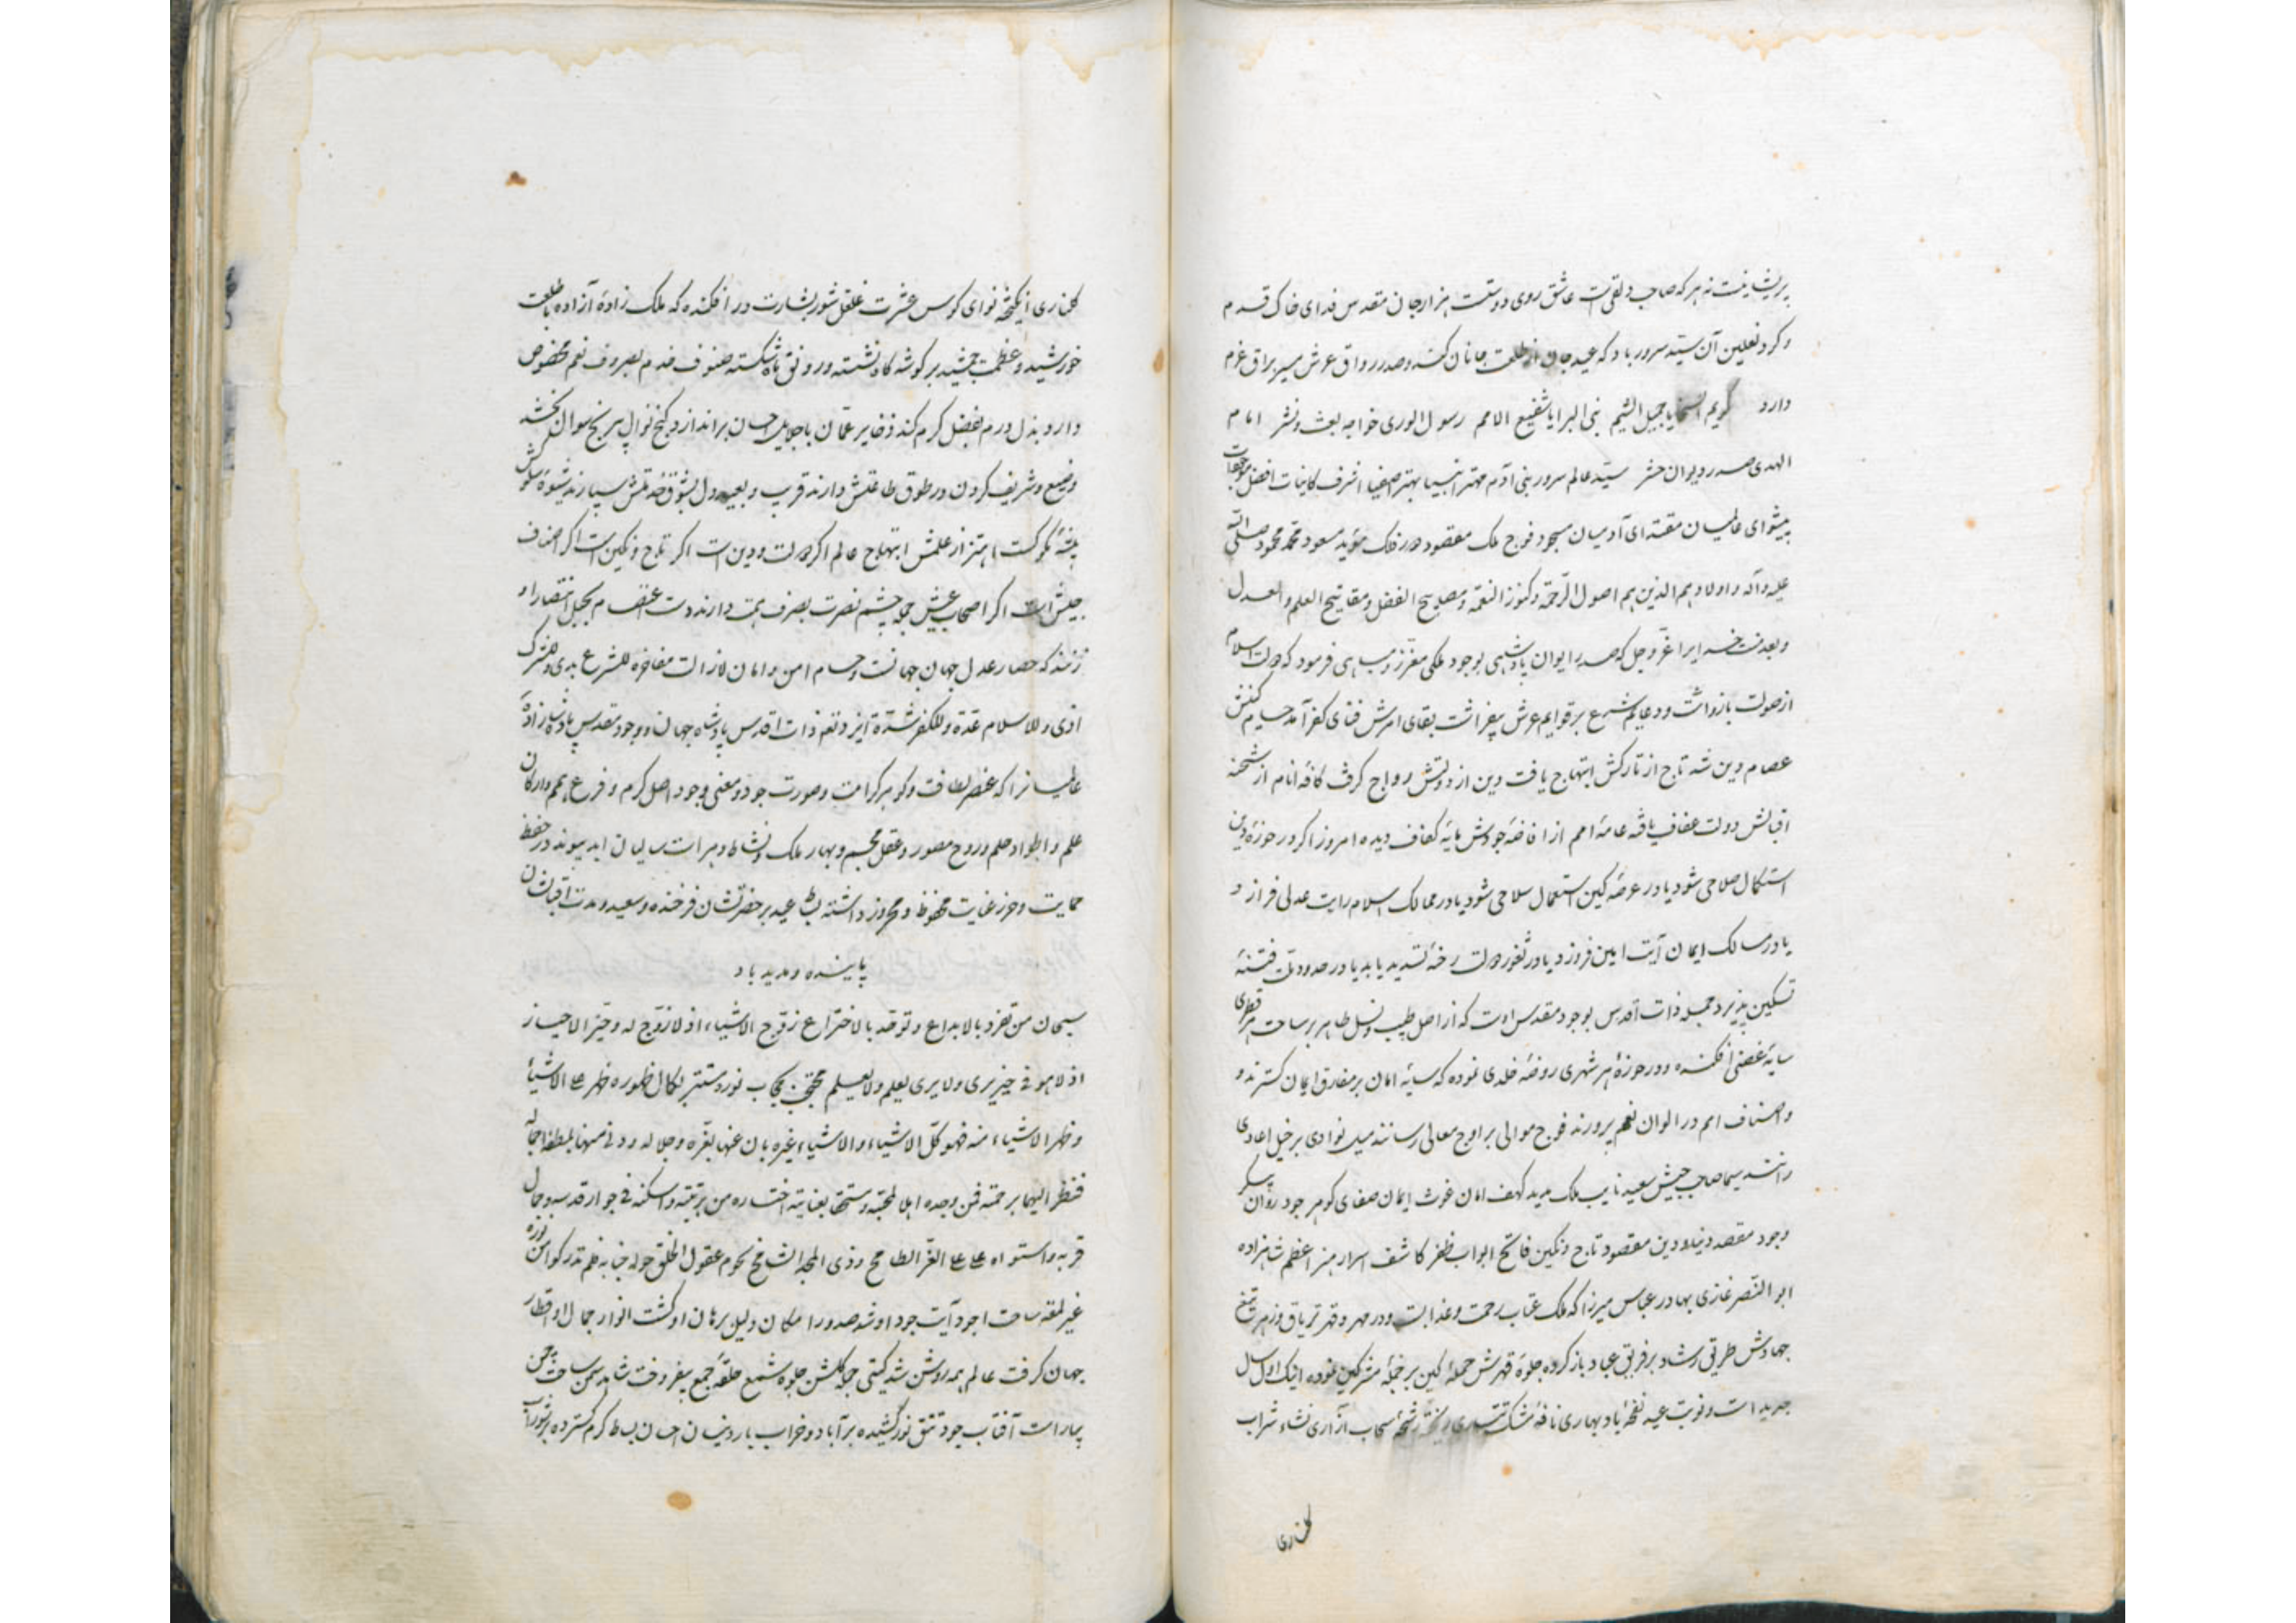 پریشانیست نه هر که صاحب دلقی است عاشق روی دوستست هزار جان مقدس فدای خاک قدم
و کرد نعلین آن سید سرور باد که عید جان از طلعت جانان کند و صدر رواق عرش سیر براق عزم
دارد کریم السجایا جمیل الشیم نبی البرایا شفیع الامم رسول الوری خواجه بعث و نشر امام
الهدی صدر دیوان حشر سید عالم سرور بنی آدم مهتر انبیا بهتر اصفیا اشرف کاینات افضل موجودات
پیشوای عالمیان مقتدای آدمیان مسجود فوج ملک مقصود دور فلک مؤید مسعود محمد محمود صلی الله
علیه و آله و اولاده هم الذین هم اصول الرحمة و کنوز النعمة و مصابیح الفضل و مفاتیح العلم و العدل
و بعد منت خدایرا عز و جل که صدر ایوان پادشاهی بوجود ملکی معزز و مباهی فرمود که دولت اسلام
از صولت بازو داشت و دعایم شرع بر قوایم عرش بیفراشت بقای امرش فنای کفر آمد حسام کفش
عصام دین شد تاج از تارکش ابتهاج یافت دین از دولتش رواج کرفت کافه انام از شحنه
اقبالش دولت عفاف یافته عامه امم از افاضه جودش مایه کفاف دیده امروز اکر در حوزه دین
استکمال صلاحی شود یا در عرصه کین استعمال سلاحی شود یا در ممالک اسلام رایت عدلی فرازد و
یا در مسالک ایمان آیت امین فروزد یا در ثغور دولت رخنه تسدید یابد یا در حدود ملت فتنه
تسکین پذیرد جمله ذات اقدس بوجود مقدس اوست که از اصل طیب و نسل طاهر بر ساحت هر قطری
سایه غصنی افکنده و در حوزه هر شهری روضه خلدی نموده که سایه امان بر مفارق ایمان کسترند و
و اصناف امم در الوان نعم پرورند فوج موالی بر اوج معالی رسانند سیل نوادی بر خیل اعادی
رانند سیما صاحب جیش سعید نایب ملک مدید کهف امان غوث ایمان صفای کوهر جود روان پیکر
وجود مقصد دنیا و دین مقصود تاج و نکین فاتح ابواب ظفر کاشف اسرار هنر اعظم شاهزاده
ابو النصر غازی بهادر عباس میرزا که ملک عتاب رحمت و عذابست و در مهر و قهر تریاق و زهر تیغ
جهادش طریق رشاد بر فریق عباد باز کرده جلوه قهرش حمله کین بر جمله مشرکین نموده اینک اول سال
جدید است و نوبت عید نفحه باد بهاری نافه مشک تتاری ریخته رشحه سحاب آزاری نشاء شراب
کلناری
کلناری انکیخته نوای کوس عشرت غلغل شور بشارت در افکنده که ملک زاده آزاده با طلعت
خورشید و عظمت جمشید بر کوشه کاه نشسته و رونق ماه شکسته صنوف خدم بصروف نعم مخصوص
دارد بذل درم بفضل کرم کند ذخایر عمان با جلایل احسان براندازد کنج نوال بی رنج سوال بخشد
وضیع و شریف کردن در طوق طاعتش دارند قریب و بعید دل بشوق خدمتش سپارند شیوه شکرش
پیشه کرکست اهتزاز علمش ابتهاج عالم اکر دولت و دین است اکر تاج و نکین است اکر اصناف
جیش است اکر اصحاب عیش جمله چشم نصرت بصرف همت دارند و دست اعتصام بحبل انتصار او
زنند که حصار عدل جهان جهانست و حسام امن و امان لازالت مفاخره للشرع بدی و للشرک
اذی و للاسلام عدة و للکفر شدة ایزد تعالی ذات اقدس پادشاه جهان و وجود مقدس پادشاه زاده
عالمیانرا که عنصر لطافت و کوهر کرامت و صورت جود و معنی وجود اصل کرم و فرع همم و ارکان
علم و اطواد حلم و روح مصور و عقل مجسم و بهار ملک و نشاط دهراست سالیان ابد پیوند در حفظ
حمایت و حرز عنایت محفوظ و محروز داشته بساط عید بر حضرتشان فرخنده و سعید و مدت اقبالشان
پاینده و مدید باد
سبحان من تفرد بالابداع و توحد بالاختراع زوج الاشیاء اذ لا زوج له و حیز الاحیاز
اذ لا هو فی حیز یری و لا یری یعلم و لا یعلم محتجب بحجاب نوره مستتر بکمال ظهوره ظهر علی الاشیاء
و ظهر الاشیاء منه فهو کل الاشیاء و الاشیاء غیره بان عنها بعزه و جلاله و دنی منها بلطفه و جماله
فنظر الیها برحمته فمن وجده اهلا لمحبته و مستحقا بعنایته اختاره من بریته و اسکنه فی جوار قدسه و جمال
قربه و استواه علی العز الطامح و ذی المجد الشامخ یحوم عقول الخلق حول جنابه فلم تدرکوا من نوره
غیر لمعة ساحت وجود آیت جود او شد صدور امکان دلیل برهان او کشت انوار جمال او اقطار
جهان کرفت عالم همه روشن شد کیتی جمله کلشن جلوه شمع حلقه جمع بیفروخت شاهد سمن ساحت چمن
بیاراست آفتاب جود تتق نور کشیده بر آباد و خراب بارد نیسان احسان بساط کرم کسترده بر